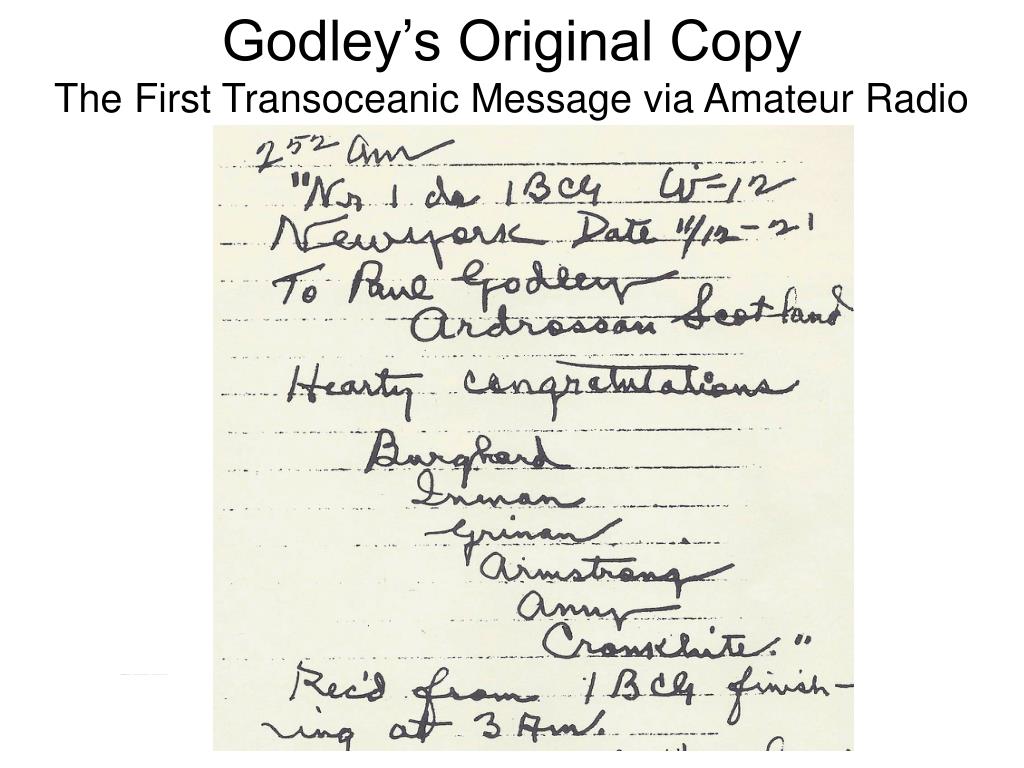 Godley’s Original Copy
The First Transoceanic Message via Amateur Radio
2 52 am
"Nr 1 de 1BCG W-12
New york Date 11/12-21
To Paul Godley
Ardrossan Scotland
Hearty congratulations
Burghard
Inman
Grinan
Armstrong
Amy
Cronkhite."
Rec'd from 1BCG finish-
ing at 3 Am.